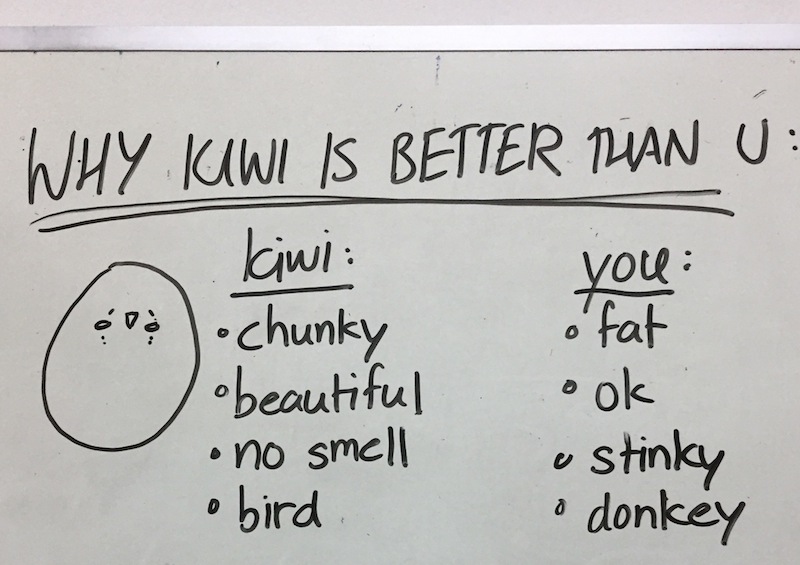 WHY KIWI IS BETTER THAN U:
kiwi: you:
• chunky • fat
• beautiful • ok
• no smell • stinky
• bird • donkey